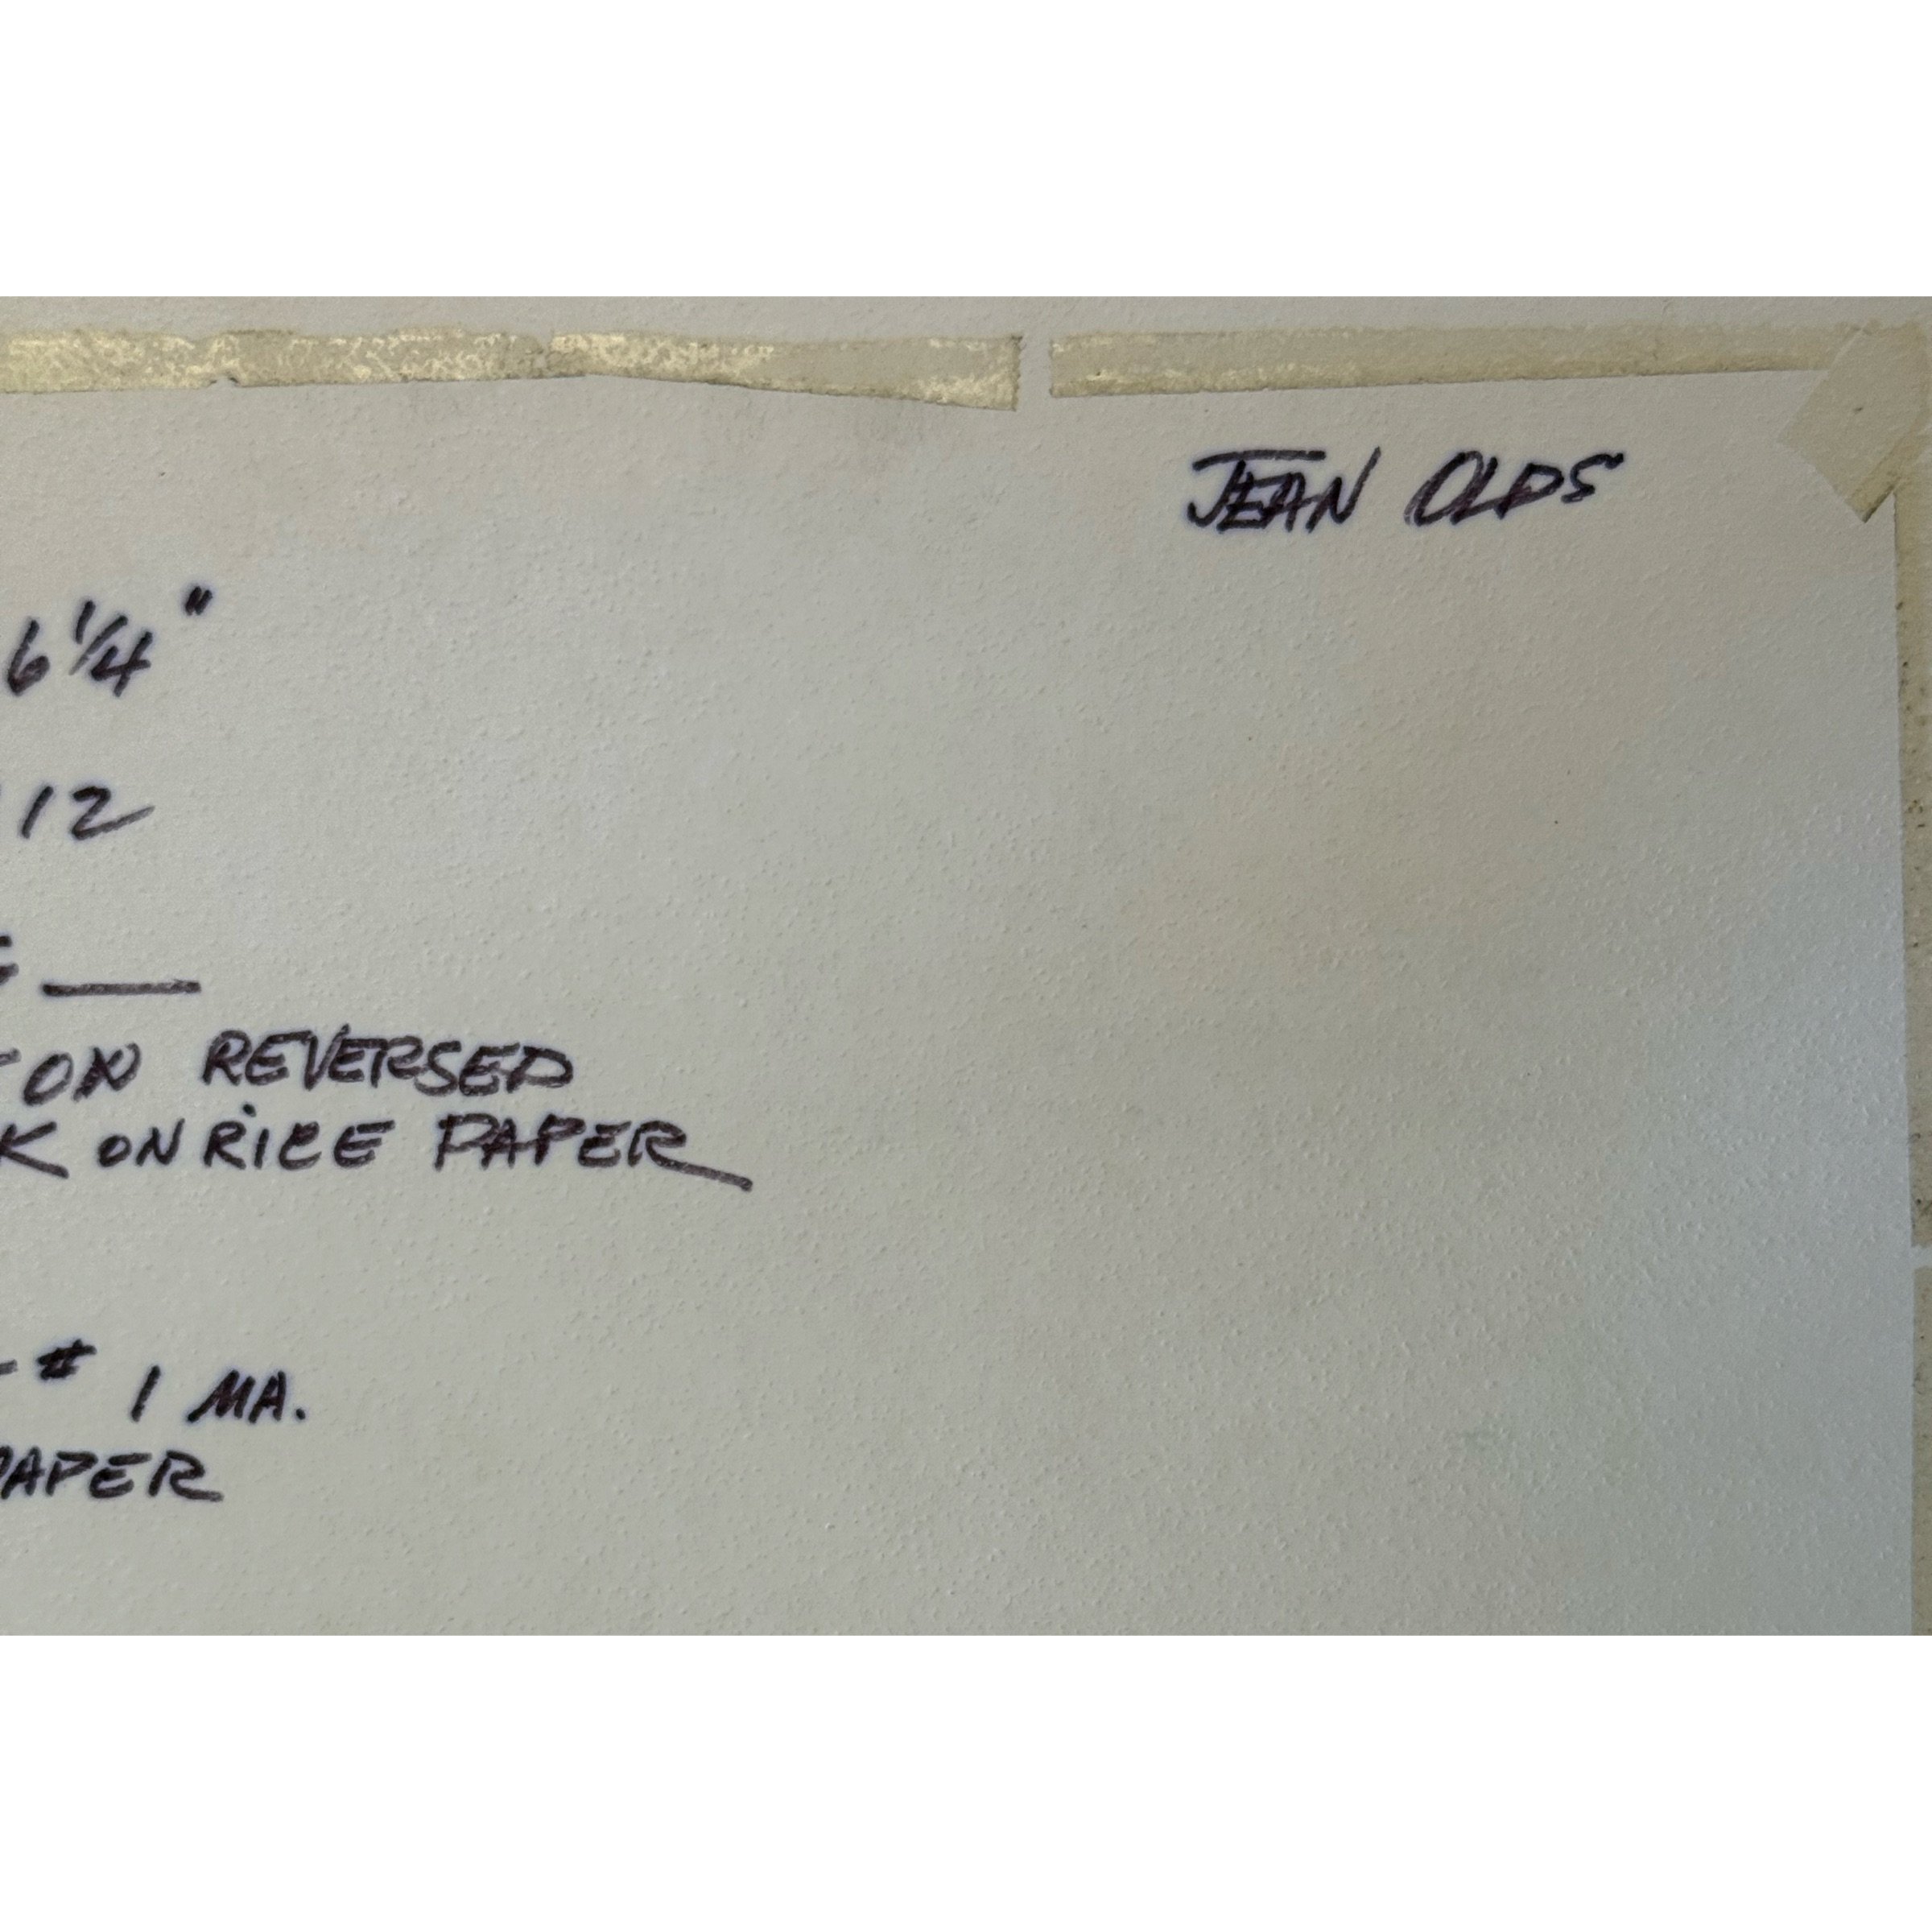 JEAN OLDS
6 1/4"
12
ON REVERSED
K ON RICE PAPER
# 1 MA.
PAPER